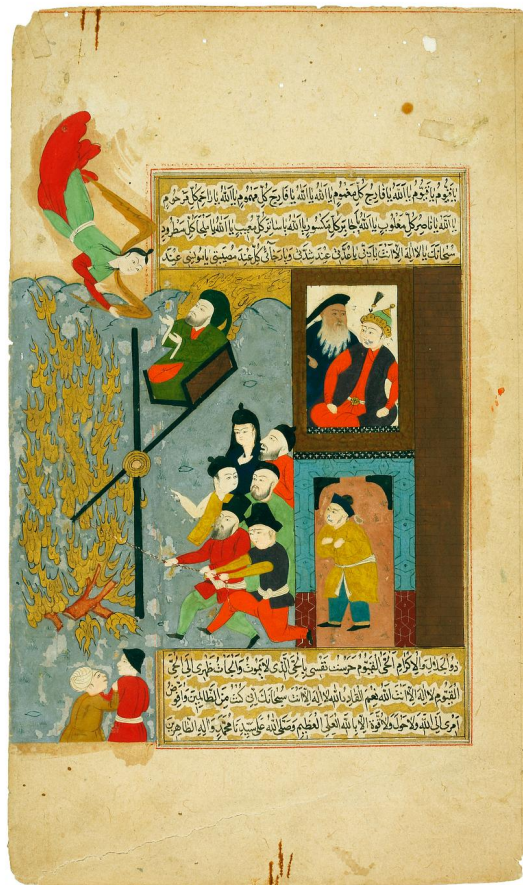 يا قيوم يا قيوم يا الله يا فارج كل مغموم يا الله يا الله يا فارج كل مهموم يا الله يا راحم كل مرحوم
يا الله يا ناصر كل مغلوب يا الله يا جابر كل مكسور يا الله يا ساتر كل معيب يا الله يا ملجأ كل مطرود
سبحانك يا لا اله الا انت يا عدتى عند شدتى ويا رجائى عند مصيبتى يا مونسى عند
ذو الجلال والاكرام الحى القيوم حصنت نفسى بالحى الذى لا يموت والجات ظهرى الى الحى
القيوم لا اله الا انت الله نعم القادر الله لا اله الا انت سبحانك انى كنت من الظالمين وافوض
امرى الى الله ولا حول ولا قوة الا بالله العلى العظيم وصلى الله على سيدنا محمد واله الطاهرين